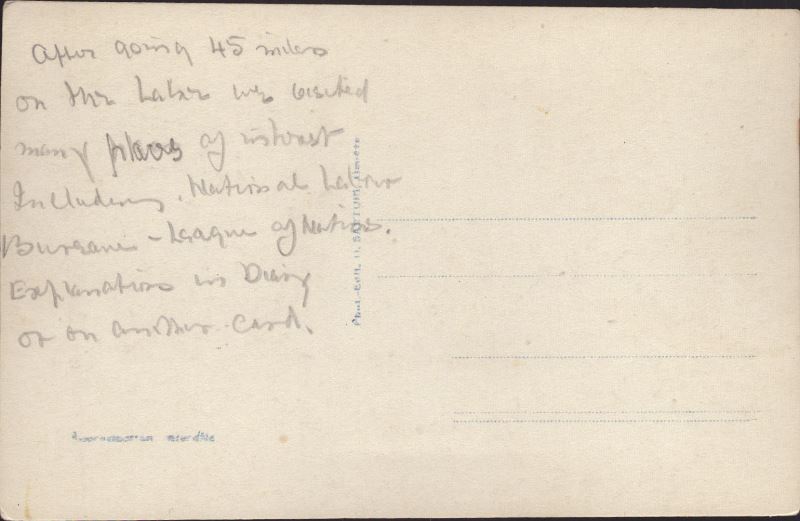 After going 45 miles
on the Lake we visited
many places of interest
Including, National Labour
Bureau - League of Nations.
Explanations in Diary
or on another card.
Reproduction interdite